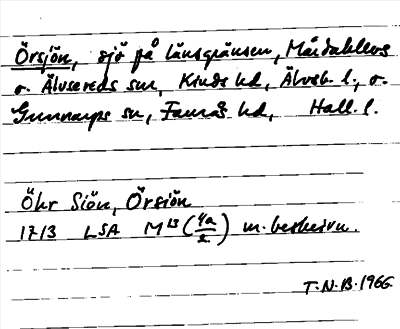 Örsjön, sjö på länsgränsen, Mårdaklevs
o. Älvsereds snr, Kinds hd, Älvsb. l., o.
Gunnarps sn, Faurås hd, Hall. l.
Öhr Siön, Örsiön
1713 LSA M13 (4a/2) m. beskrivn.
T.N.B. 1966